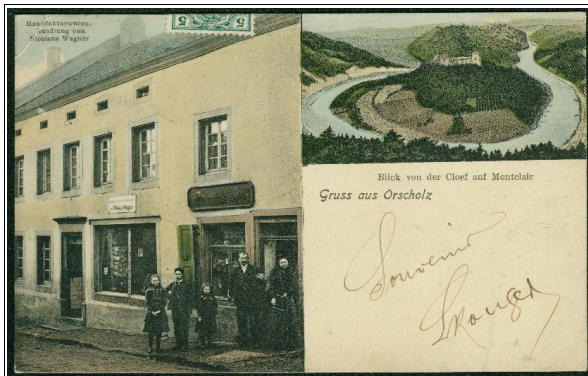 Manufakturwaren-
handlung von
Nicolaus Wagner
5 5
Blick von der Cloef auf Montclair
Gruss aus Orscholz
Souvenir